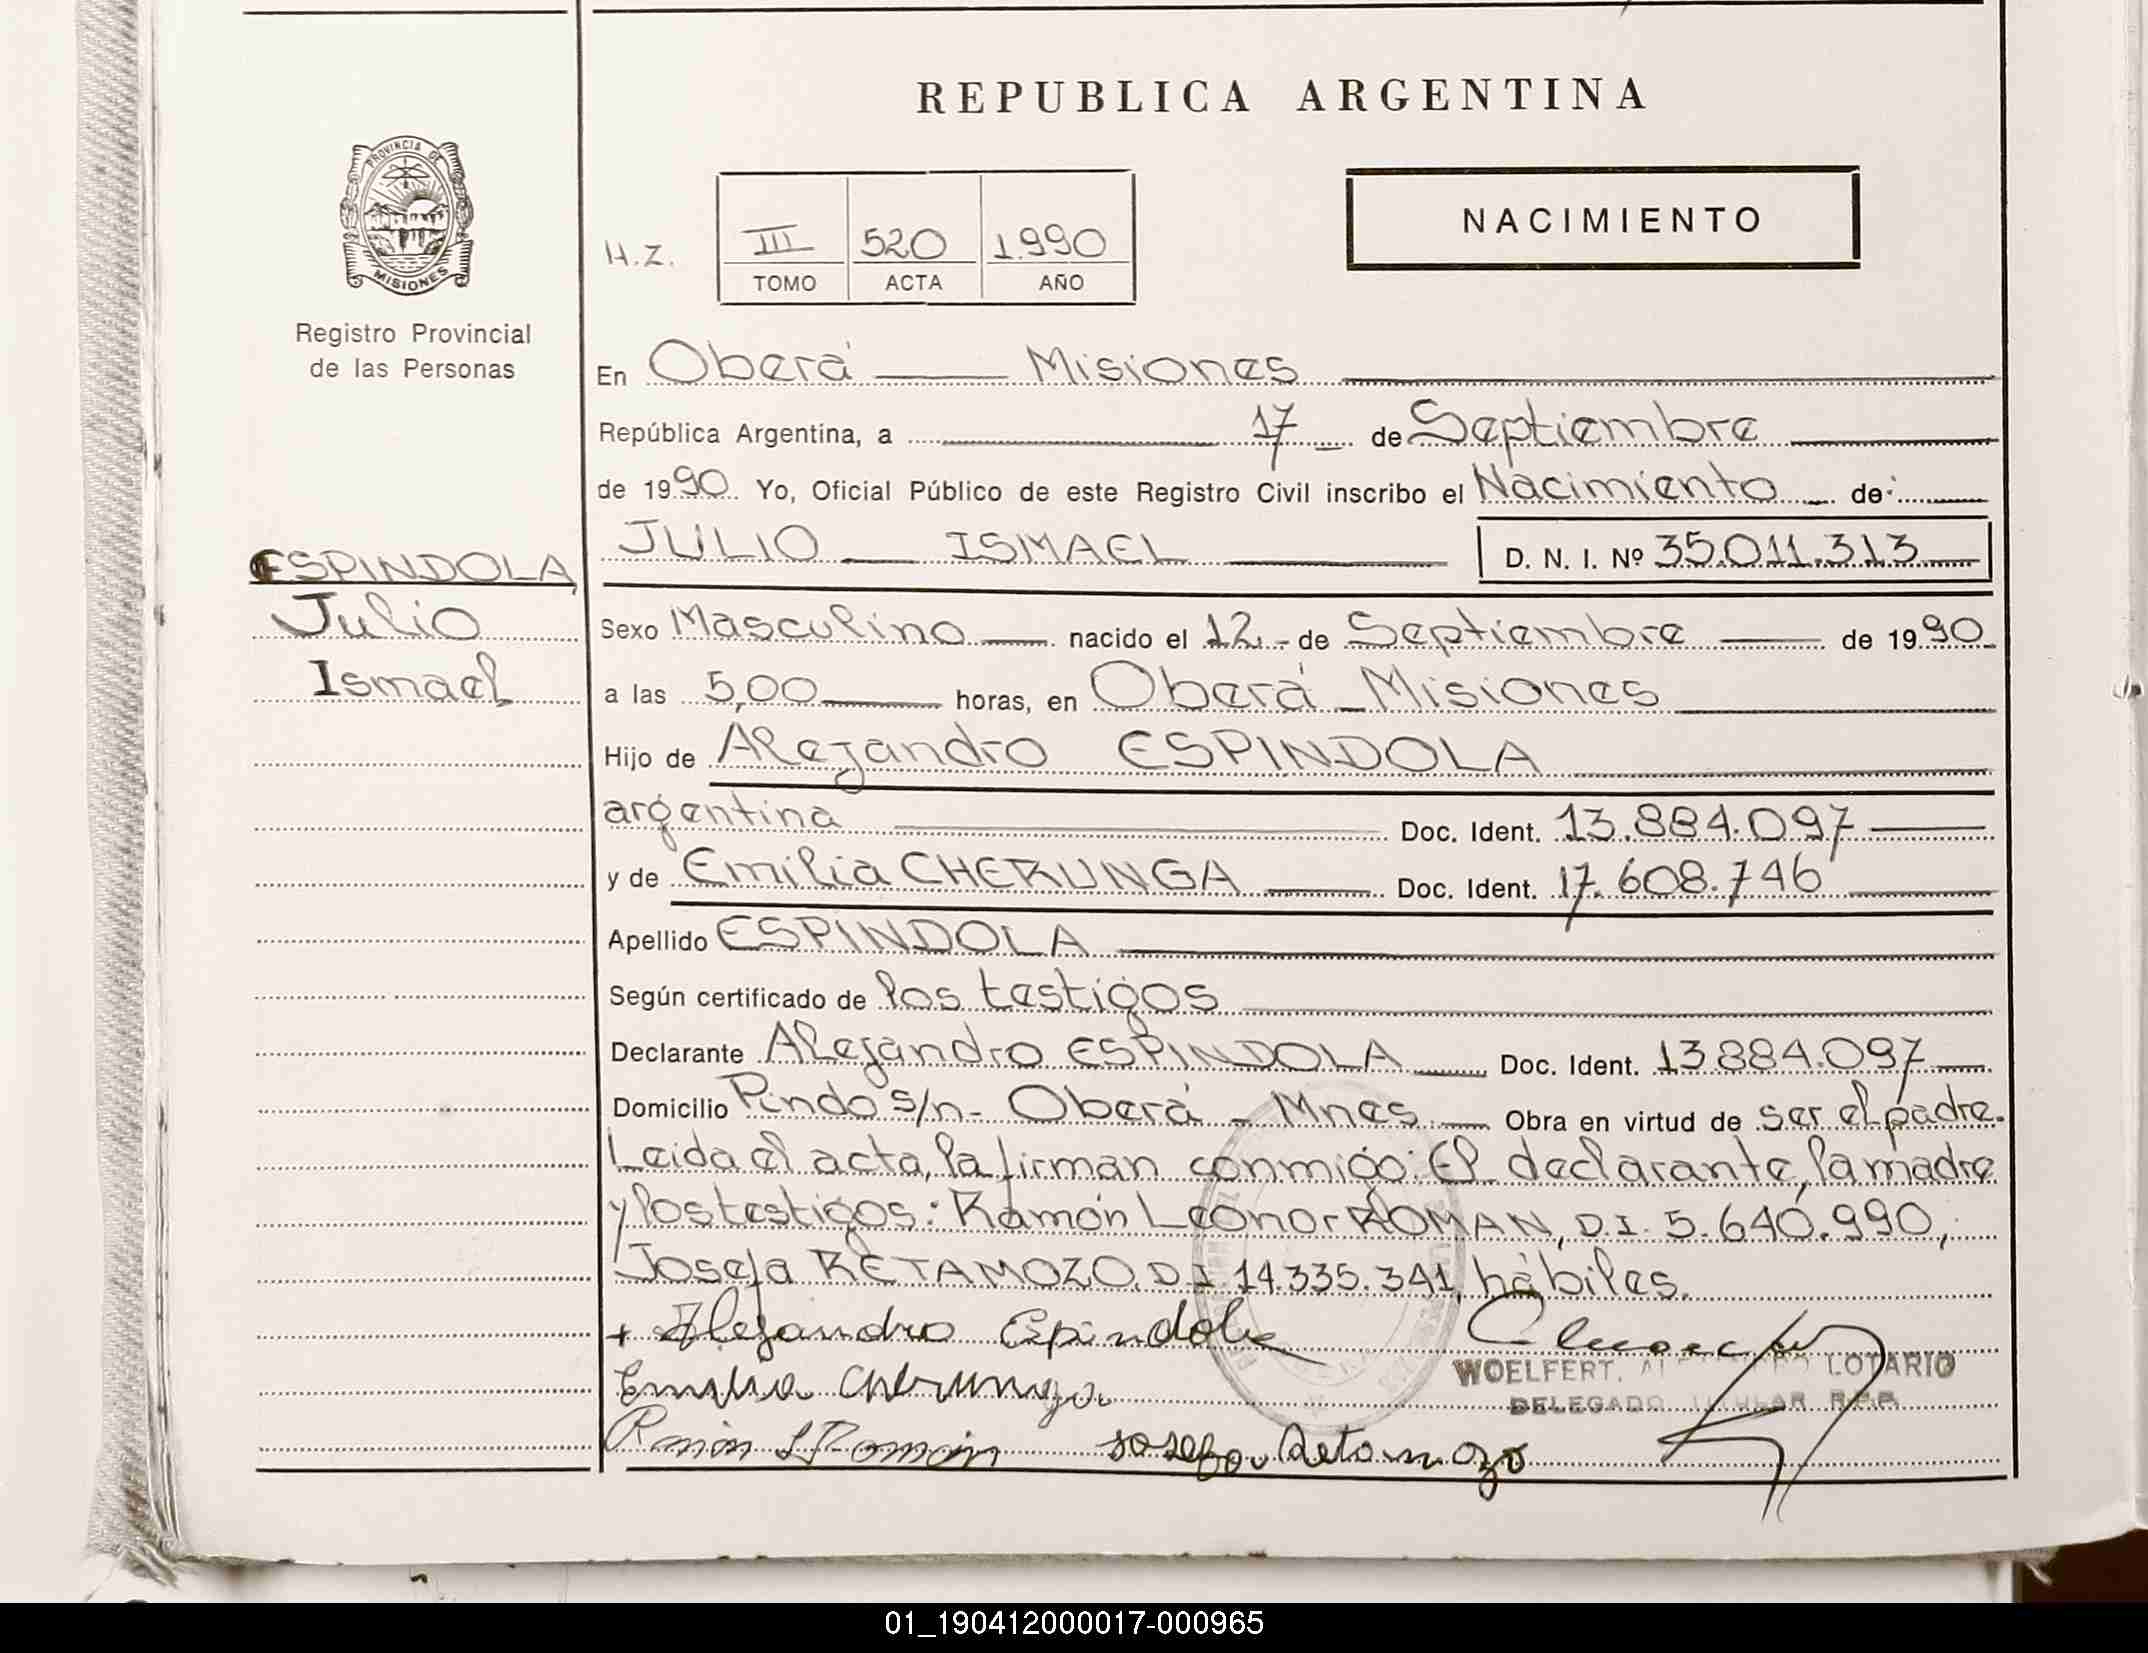 REPUBLICA ARGENTINA
PROVINCIA DE
MISIONES
Registro Provincial
de las Personas
NACIMIENTO
H.Z.
III 520 1.990
TOMO ACTA AÑO
En Oberá Misiones
República Argentina, a 17 de Septiembre
de 1990 Yo, Oficial Público de este Registro Civil inscribo el Nacimiento de:
JULIO ISMAEL D. N. I. Nº 35.011.313
ESPINDOLA,
Julio
Ismael
Sexo Masculino nacido el 12 de Septiembre de 1990
a las 5,00 horas, en Oberá - Misiones
Hijo de Alejandro ESPINDOLA
argentina Doc. Ident. 13.884.097
y de Emilia CHERUNGA Doc. Ident. 17.608.746
Apellido ESPINDOLA
Según certificado de los testigos
Declarante Alejandro ESPINDOLA Doc. Ident. 13.884.097
Domicilio Pindo s/n - Oberá - Mnes Obra en virtud de ser el padre.
Leida el acta, la firman conmigo: El declarante, la madre
y los testigos: Ramón Leonor ROMAN, D.I. 5.640.990,
Josefa RETAMOZO, D.I. 14.335.341, hábiles.
+ Alejandro Espindola
WOELFERT, LOTARIO
DELEGADO TITULAR R.P.P.
Emilia Cherunga
Ramón L Román Josefa Retamozo
01_190412000017-000965